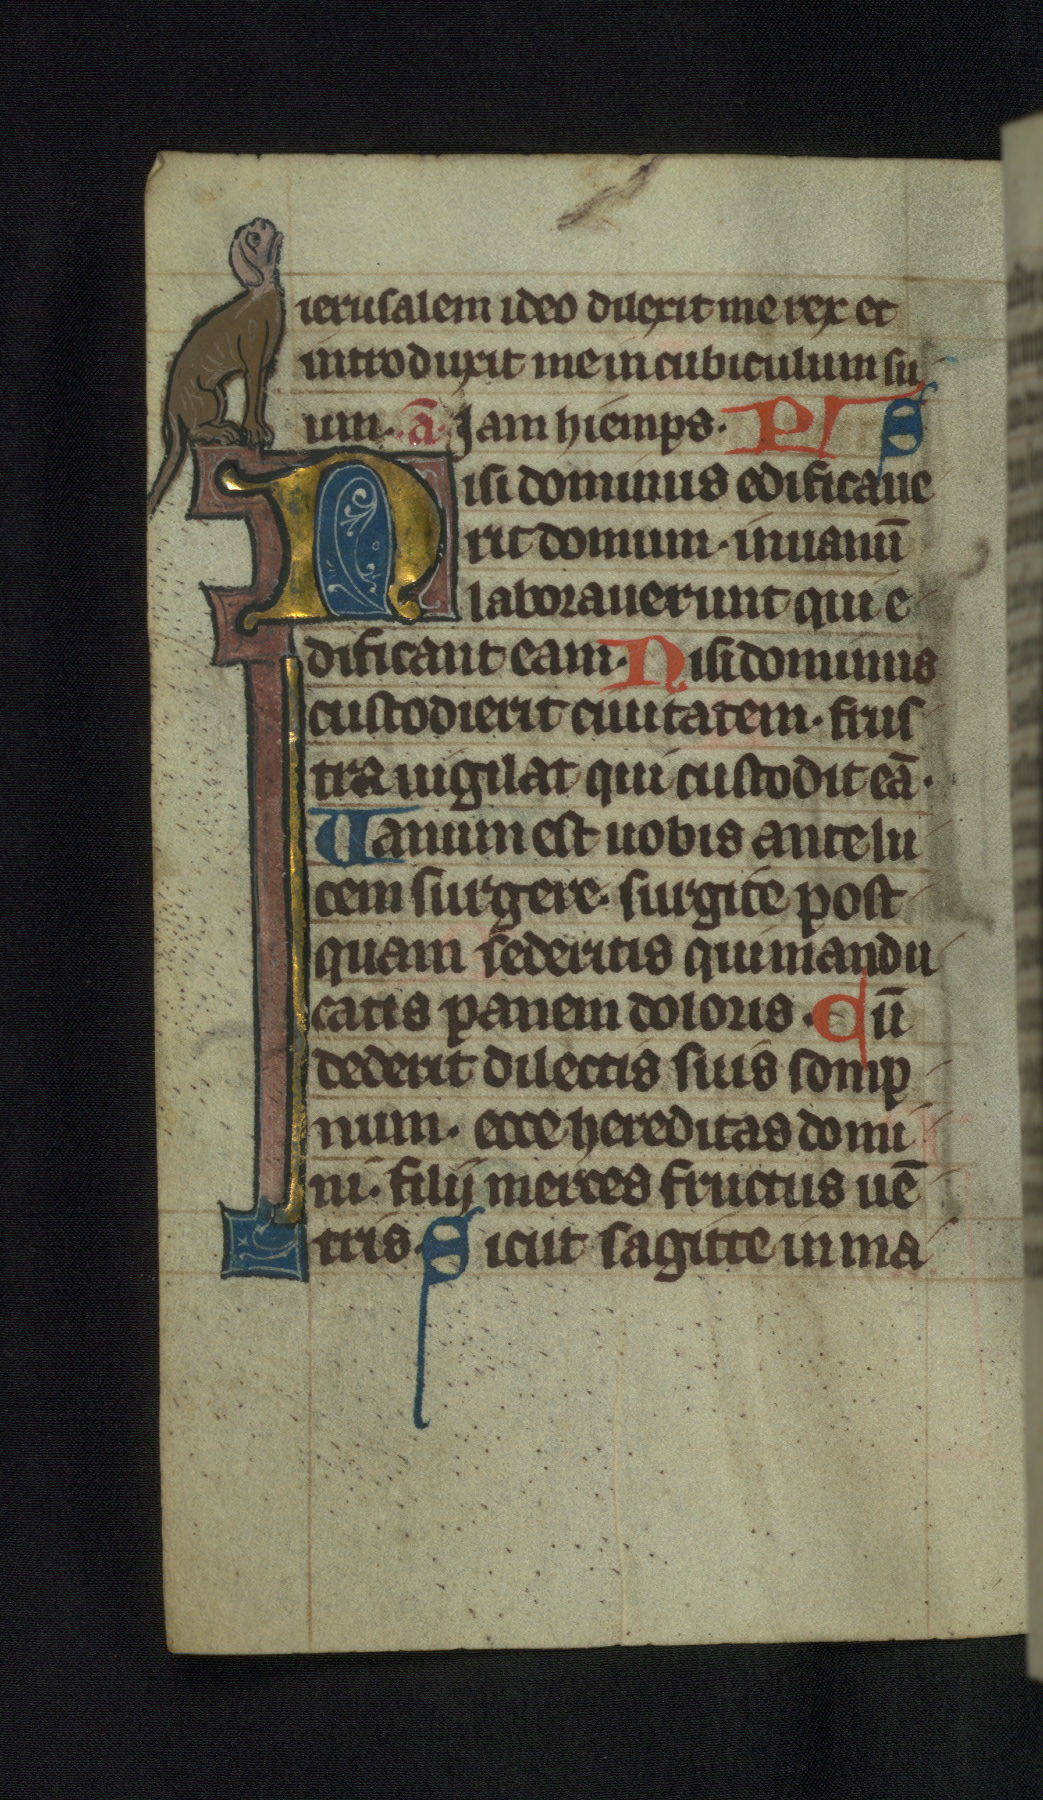 ierusalem ideo dilexit me rex et
introduxit me in cubiculum su
um. a̅ Jam hiemps. PS
Nisi dominus edificaue
rit domum. inuanu̅
laborauerunt qui e
dificant eam. Nisi dominus
custodierit ciuitatem. frus
tra uigilat qui custodit ea̅.
Uanum est uobis ante lu
cem surgere. surgite post
quam sederitis qui mandu
catis panem doloris. Cu̅
dederit dilectis suis somp
num. ecce hereditas domi
ni. filij merces fructus ue̅
tris. Sicut sagitte in ma